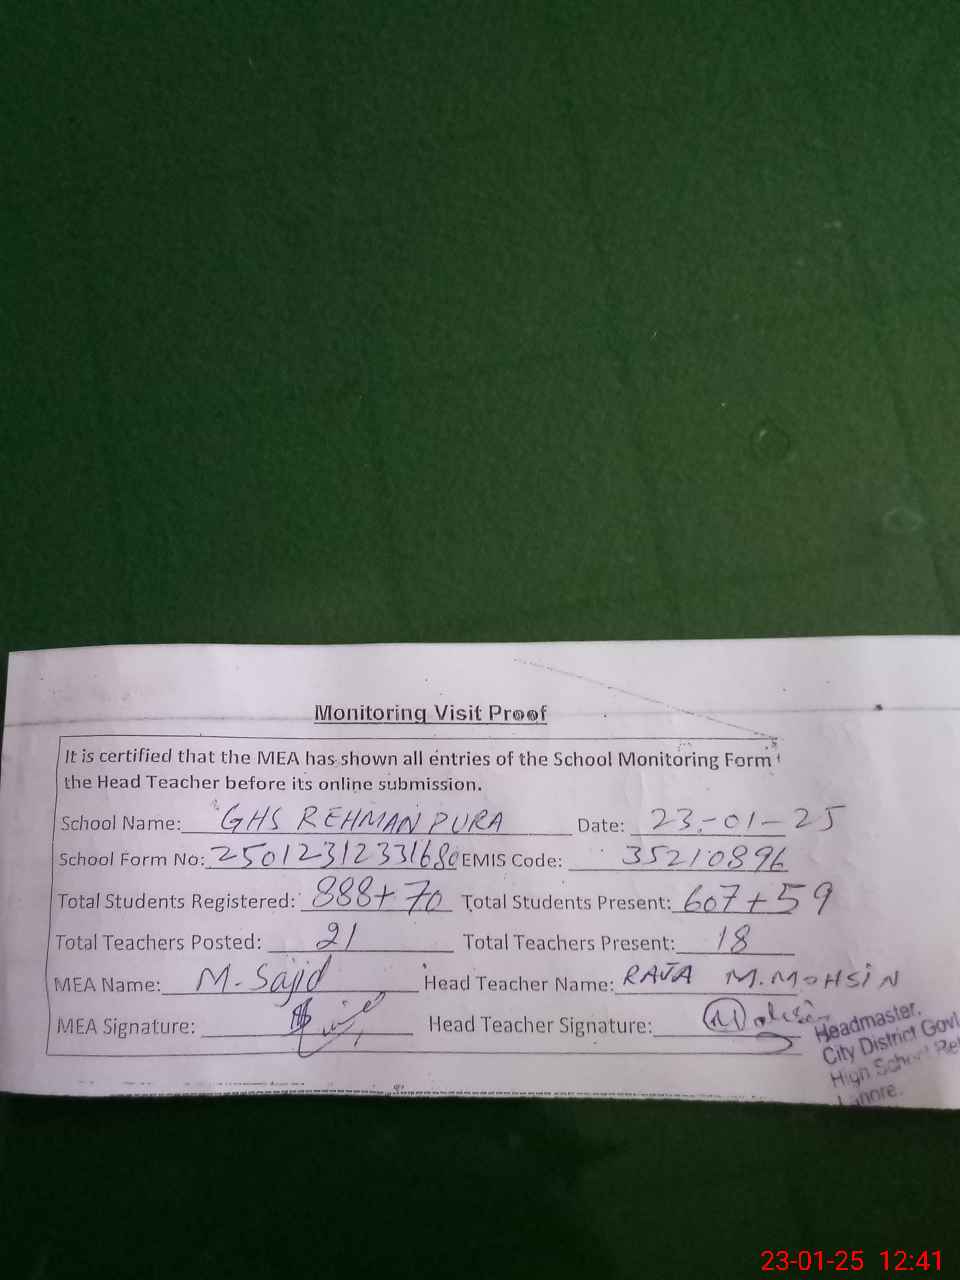 Monitoring Visit Proof
It is certified that the MEA has shown all entries of the School Monitoring Form
the Head Teacher before its online submission.
School Name: GHS REHMAN PURA Date: 23-01-25
School Form No: 25012312331680 EMIS Code: 35210896
Total Students Registered: 888+70 Total Students Present: 607+59
Total Teachers Posted: 21 Total Teachers Present: 18
MEA Name: M. Sajid Head Teacher Name: RAJA M. MOHSIN
MEA Signature: Head Teacher Signature: Mohsin
Headmaster,
City District Govt
High School Re
Lahore.
23-01-25 12:41